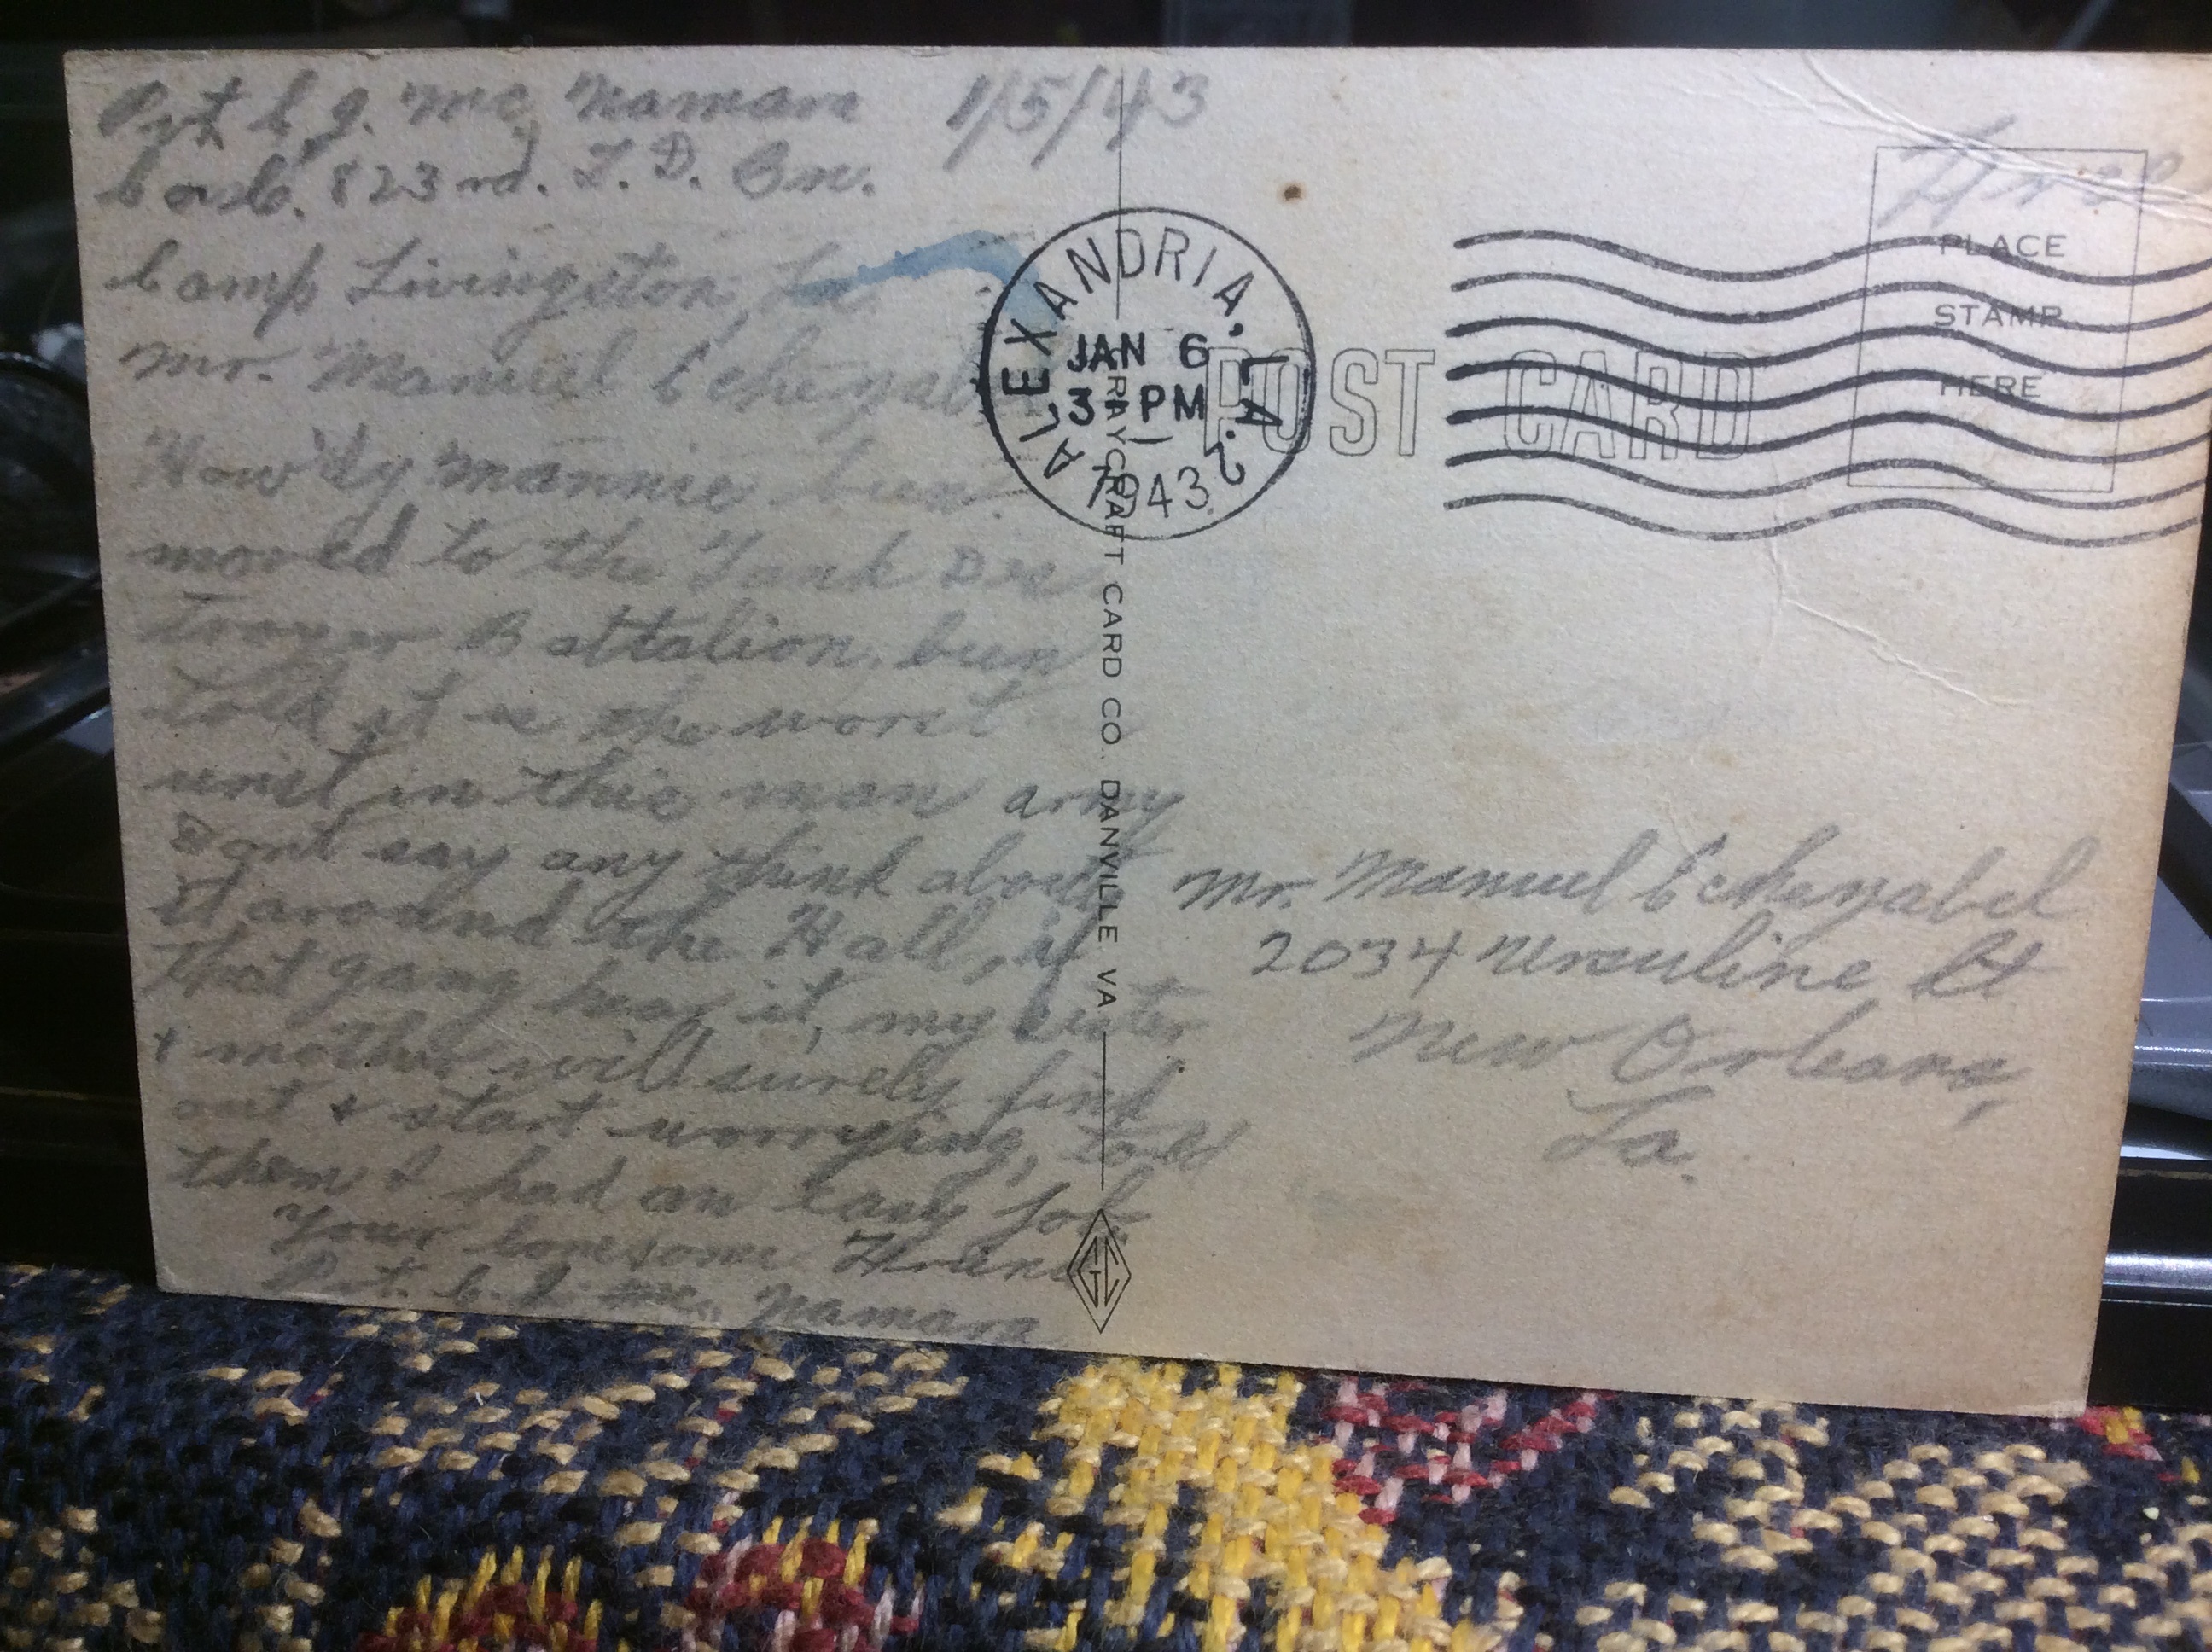 Pvt C. J. Mc, Namara 1/5/43
Co. C. 823rd. T.D. Bn.
Camp Livingston, La.
Mr. Manuel Echezabal
How'dy Mannie been
moved to the Tank Des
Troyer Battalion, been
told it is the worst
unit in this man army
Dont say any think about
it around the Hall, if
that gang hear it, my sister
+ mother will surely find
out + start worrying, told
them I had an easy job.
Your lonesome Friend
Pvt. C. J. Mc, Namara
ALEXANDRIA, LA. 2
JAN 6
3 - PM
1943
Free
PLACE
STAMP
HERE
POST CARD
GRAYCRAFT CARD CO. DANVILLE VA
GC
Mr. Manuel Echezabal
2034 Ursuline St
New Orleans,
La.